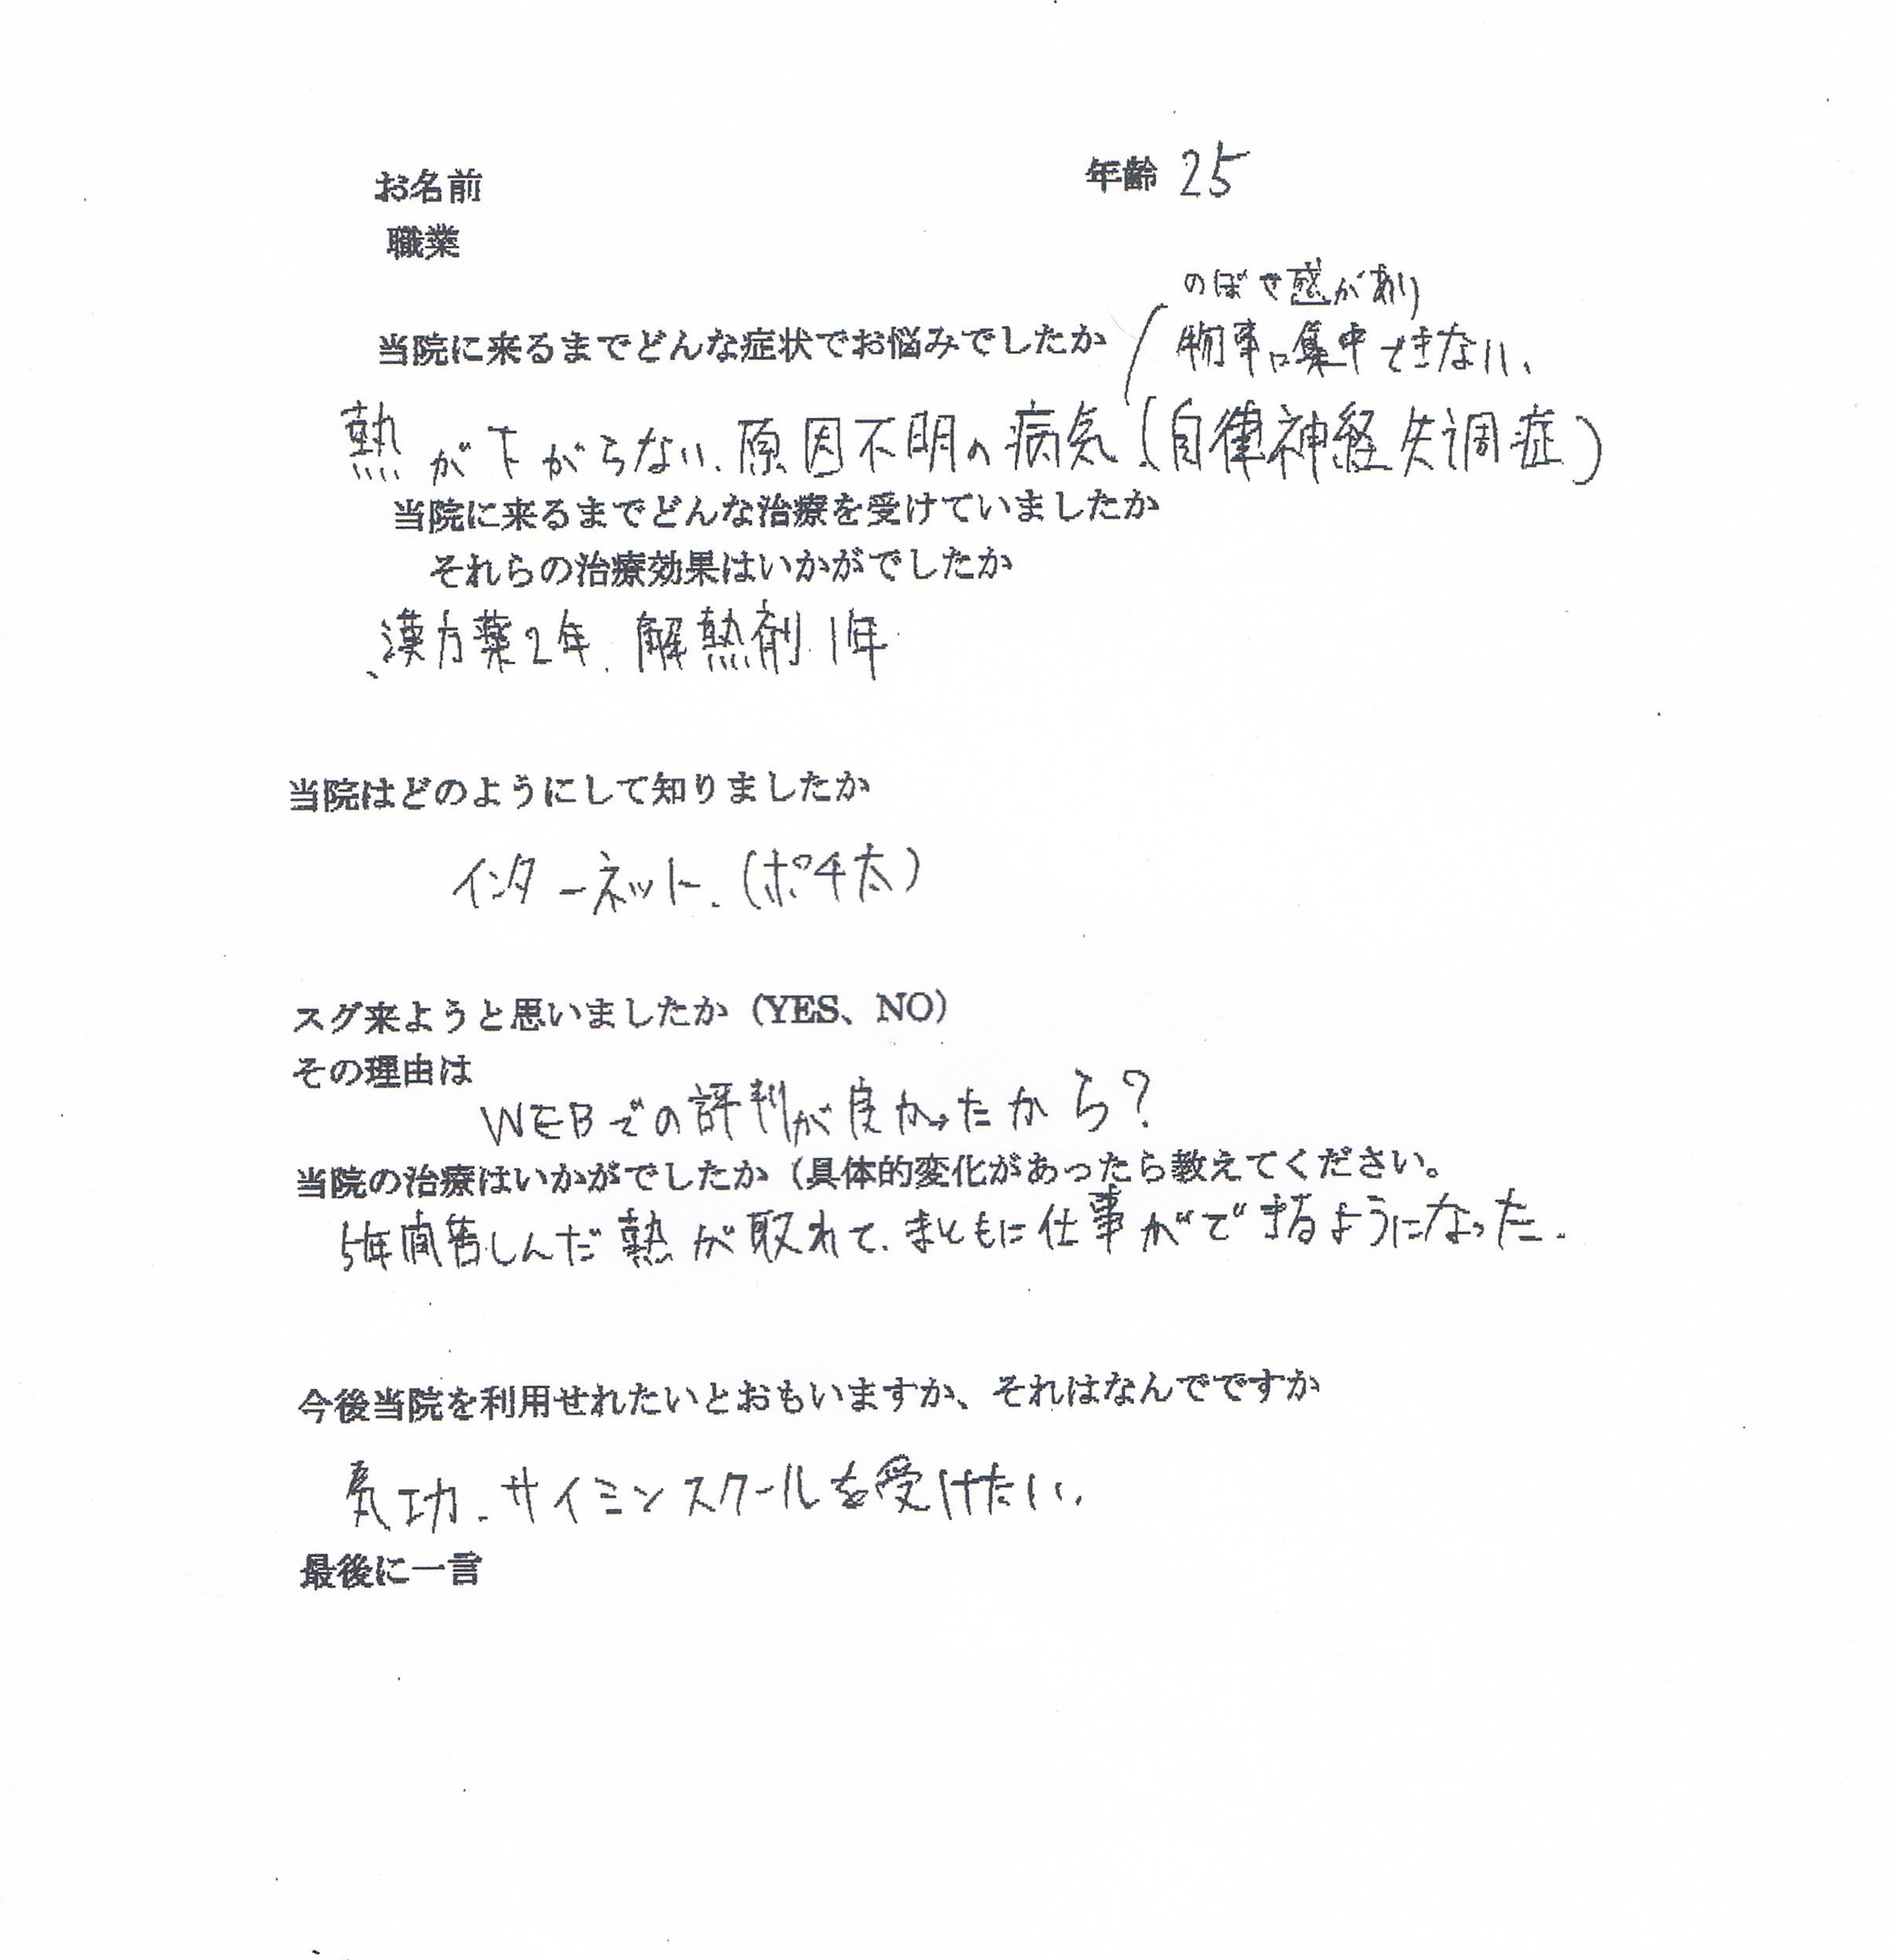 お名前
年齢 25
職業
のぼせ感があり
物事に集中できない、
当院に来るまでどんな症状でお悩みでしたか
熱が下がらない、原因不明の病気(自律神経失調症)
当院に来るまでどんな治療を受けていましたか
それらの治療効果はいかがでしたか
漢方薬2年、解熱剤1年
当院はどのようにして知りましたか
インターネット、(ポチ太)
スグ来ようと思いましたか(YES、NO)
その理由は
WEBでの評判が良かったから?
当院の治療はいかがでしたか(具体的変化があったら教えてください。
5年間苦しんだ熱が取れて、まともに仕事ができるようになった.
今後当院を利用せれたいとおもいますか、それはなんでですか
気功、サイミンスクールを受けたい、
最後に一言